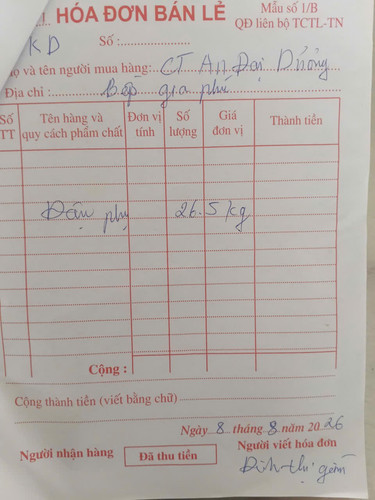 HÓA ĐƠN BÁN LẺ
Mẫu số 1/B
QĐ liên bộ TCTL-TN
KD
Số :
và tên người mua hàng: CT An Đại Dương
Địa chỉ : Bếp gia phú
Số TT
Tên hàng và quy cách phẩm chất
Đơn vị tính
Số lượng
Giá đơn vị
Thành tiền
Đậu phụ 26.5 kg
Cộng :
Cộng thành tiền (viết bằng chữ)
Ngày 8 tháng 8 năm 2026
Người nhận hàng
Đã thu tiền
Người viết hóa đơn
Đinh thị